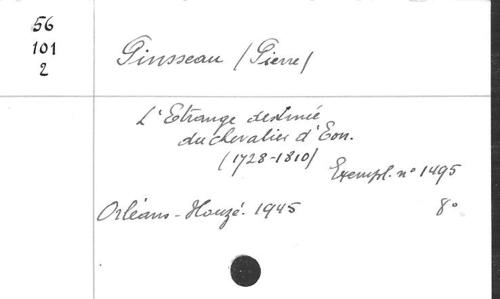 56
101
2
Pinsseau (Pierre)
L'Etrange destinée
du chevalier d'Eon.
(1728-1810)
Exempl. n° 1495
Orléans - Houzé. 1945 8°